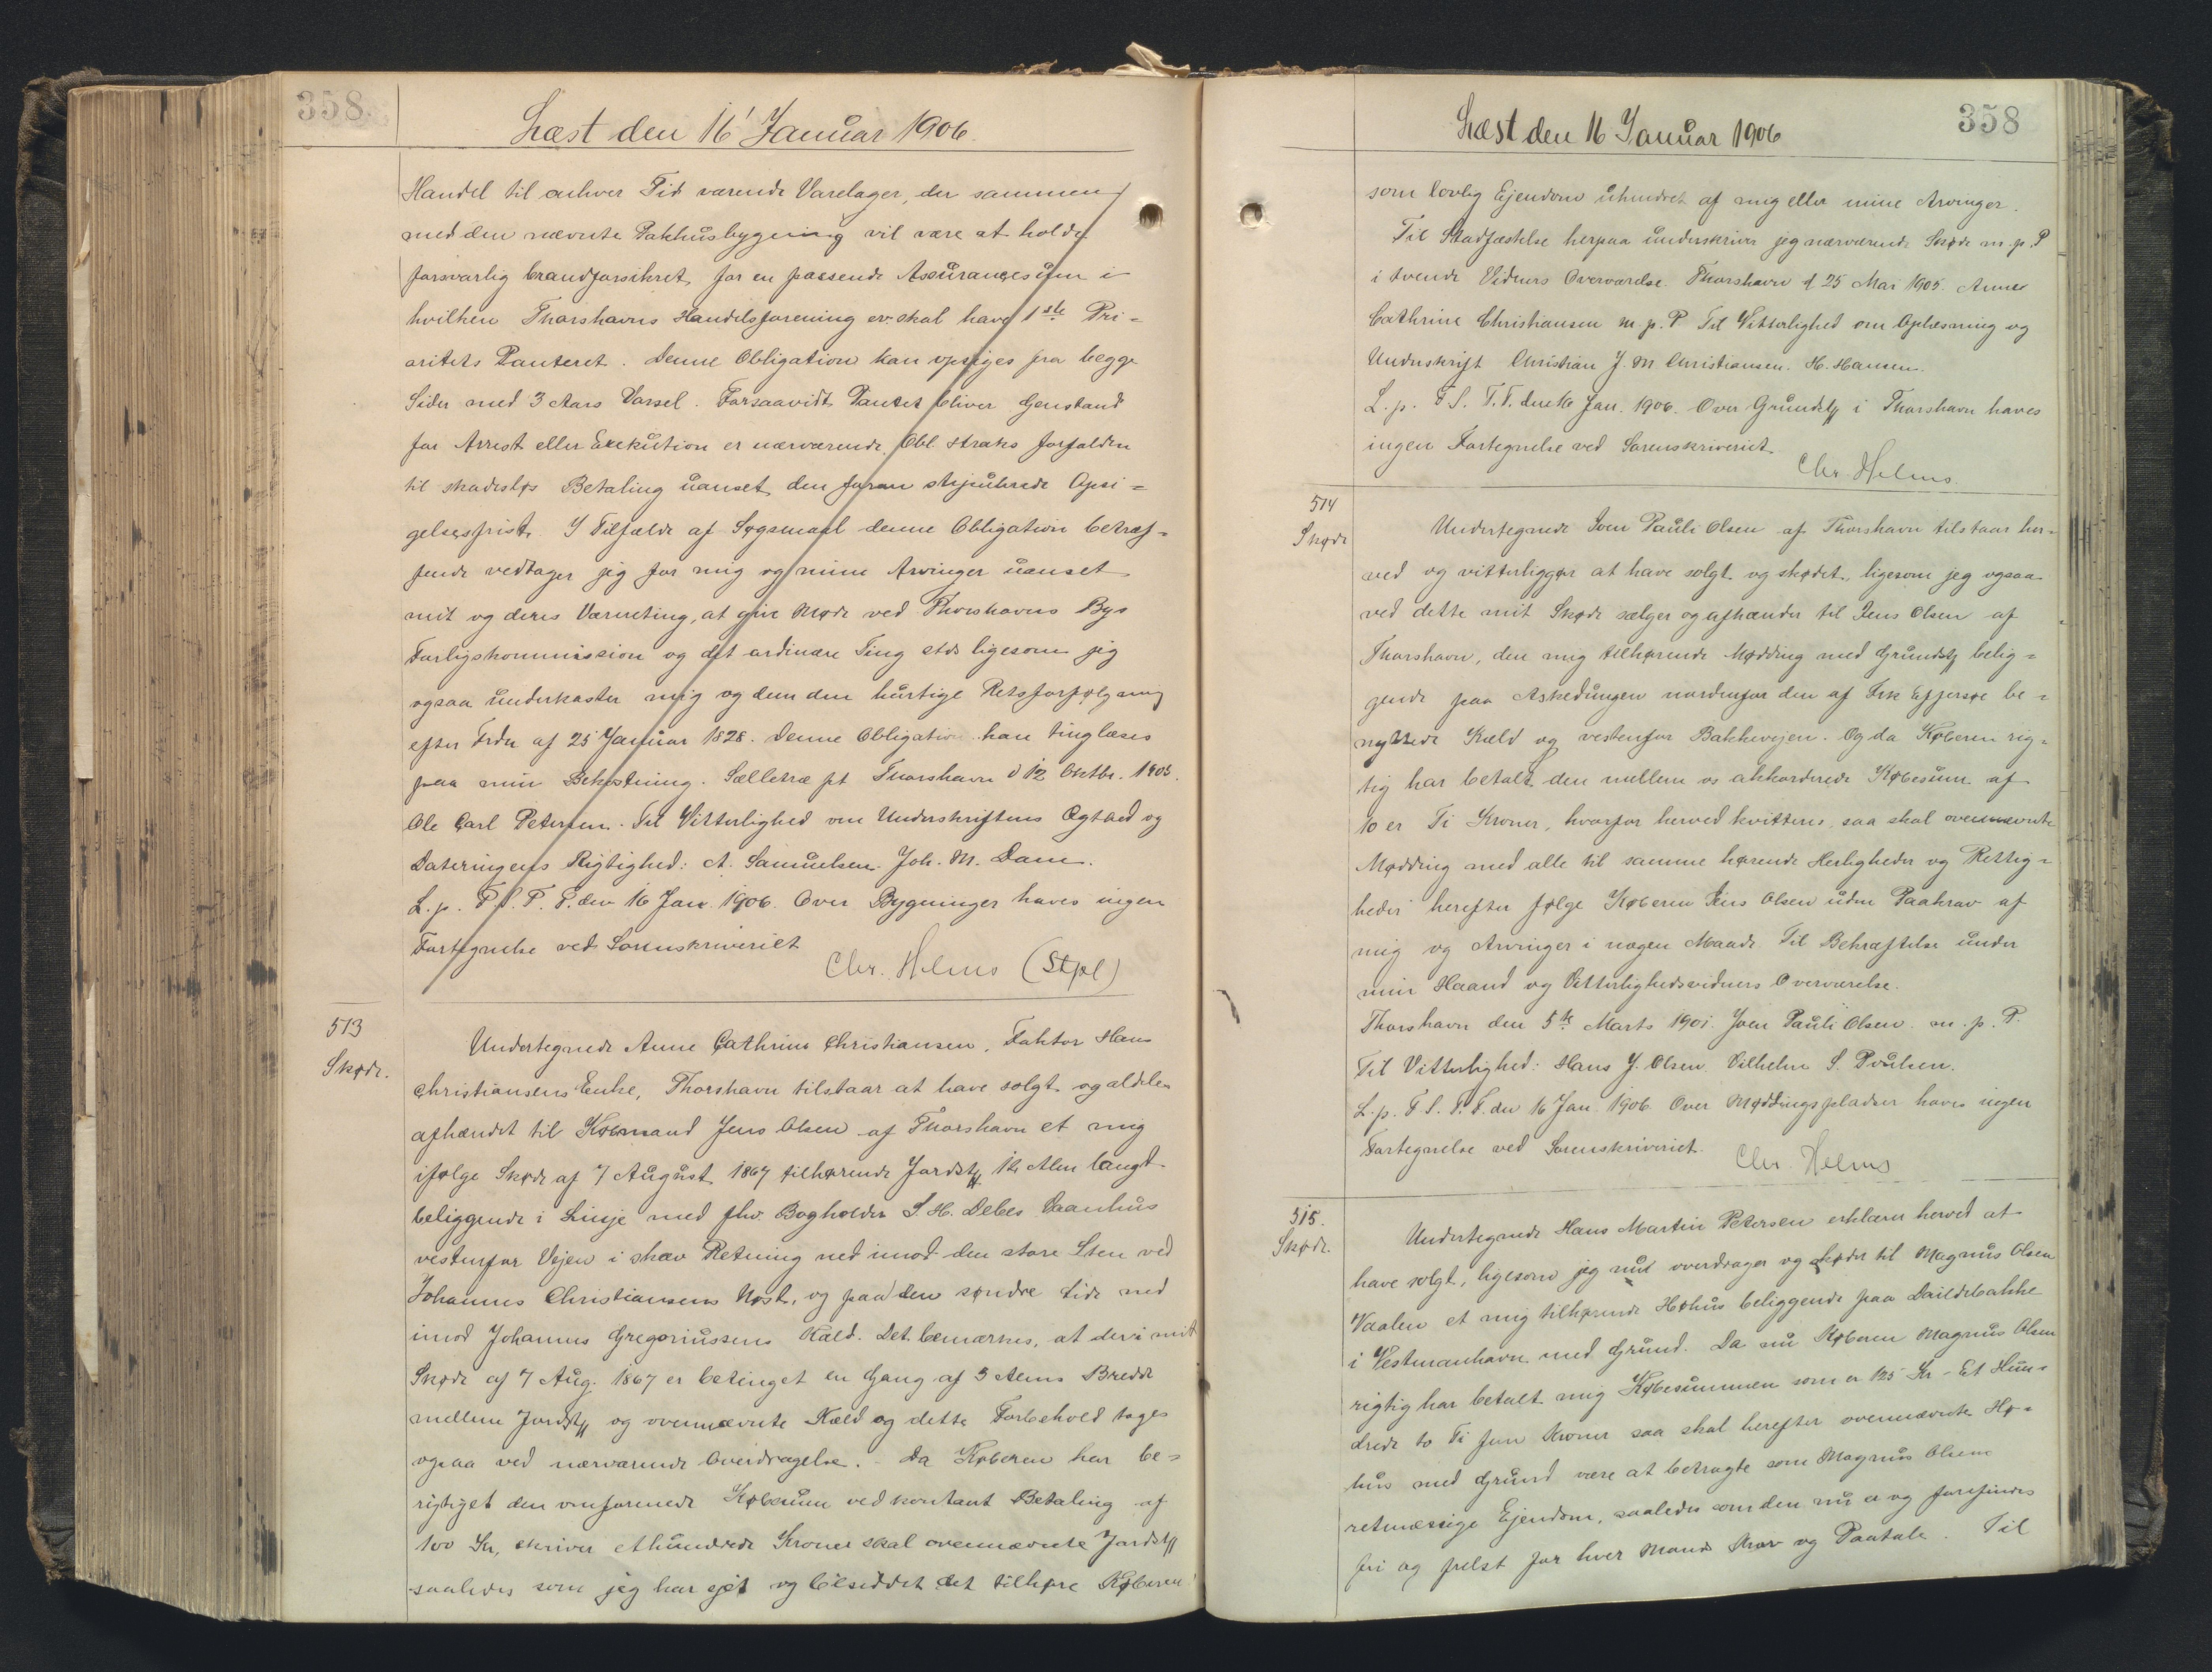 358.
Læst den 16' Januar 1906.
Handel til enhver Tid værende Varelager, der sammen
med den nævnte Pakhusbygning vil være at holde
forsvarlig brandforsikret for en passende Assurancesum i
hvilken Thorshavns Handelsforening er skal have 1ste Pri=
oritets Panteret. Denne Obligation kan opsiges fra begge
Sider med 3 Aars Varsel. Forsaavidt Pantet bliver Genstand
for Arrest eller Exekution er nærværende Obl. straks forfalden
til skadesløs Betaling uanset den foran stipulerede Opsi=
gelsesfrist. I Tilfælde af Søgsmaal denne Obligation betræf=
fende vedtager jeg for mig og mine Arvinger uanset
mit og deres Værneting, at give Møde ved Thorshavns Bys
Forligskommission og det ordinære Ting stds ligesom jeg
ogsaa underkaster mig og dem den hurtige Retsforfølgning
efter Frdn af 25 Januar 1828. Denne Obligation kan tinglæses
paa min Bekostning. Selletræ pt Thorshavn d 12 Oktbr. 1905.
Ole Carl Petersen. Til Vitterlighed om Underskriftens Ægthed og
Dateringens Rigtighed: A. Samuelsen. Joh. M. Dam.
L. p. F. S. T. T. den 16 Jan. 1906. Over Bygninger haves ingen
Fortegnelse ved Sorenskriveriet
Chr. Helms (Stpl)
513
Skøde.
Undertegnede Anne Cathrine Christiansen, Faktor Hans
Christiansens Enke, Thorshavn tilstaar at have solgt og aldeles
afhændet til Købmand Jens Olsen af Thorshavn et mig
ifølge Skøde af 7 August 1867 tilhørende Jordstk 12 Alen langt
beliggende i Linje med fhv. Bogholder S. H. Debes Vaanhus
vestenfor Vejen i skæv Retning ned imod den store Sten ved
Johannes Christiansens Nøst, og paa den søndre Side ned
imod Johannes Gregoriussens Kæld. Det bemærkes, at der i mit
Skøde af 7 Aug. 1867 er betinget en Gang af 3 Alens Bredde
mellem Jordstk og ovennævnte Kæld og dette Forbehold tages
ogsaa ved nærværende Overdragelse. Da Køberen har be=
rigtiget den omforenede Købesum ved kontant Betaling af
100 Kr, skriver Ethundrede Kroner skal ovennævnte Jordstk
saaledes som jeg har ejet og besiddet det tilhøre Køberen
358
Læst den 16 Januar 1906
som lovlig Ejendom uhindret af mig eller mine Arvinger.
Til Stadfæstelse herpaa underskriver jeg nærværende Skøde m. p. P
i tvende Vidners Overværelse. Thorshavn d 25 Mai 1905. Anne
Cathrine Christiansen m. p. P Til Vitterlighed om Oplæsning og
Underskrift Christian J. M Christiansen. H. Hansen.
L. p. F S. T. T. den 16 Jan. 1906. Over Grundstk i Thorshavn haves
ingen Fortegnelse ved Sorenskriveriet.
Chr. Helms.
514
Skøde
Undertegnede Joen Pauli Olsen af Thorshavn tilstaar her=
ved og vitterliggør at have solgt og skødet, ligesom jeg ogsaa
ved dette mit Skøde sælger og afhænder til Jens Olsen af
Thorshavn, den mig tilhørende Mødding med Grundstk belig=
gende paa Askedungen nordenfor den af Frk Effersøe be=
nyttede Kæld og vestenfor Bakkevejen. Og da Køberen rig=
tig har betalt den mellem os akkorderede Købesum af
10 er Ti Kroner, hvorfor herved kvitteres, saa skal ovennævnte
Mødding med alle til samme hørende Herligheder og Rettig=
heder herefter følge Køberen Jens Olsen uden Paakrav af
mig og Arvinger i nogen Maade. Til Bekræftelse under
min Haand og Vitterlighedsvidners Overværelse.
Thorshavn den 5te Marts 1901. Joen Pauli Olsen m. p. P.
Til Vitterlighed: Hans J. Olsen. Vilhelm S. Poulsen.
L. p. F. S. T. T. den 16 Jan. 1906. Over Møddingspladser haves ingen
Fortegnelse ved Sorenskriveriet.
Chr. Helms
515.
Skøde.
Undertegnede Hans Martin Petersen erklærer herved at
have solgt, ligesom jeg nu overdrager og skøder til Magnus Olsen
Vaalen et mig tilhørende Høhus beliggende paa Daildebakke
i Vestmanhavn med Grund. Da nu Køberen Magnus Olsen
rigtig har betalt mig Købesummen som er 125 Kr - Et Hun=
drede to Ti fem Kroner saa skal herefter ovennævnte Hø=
hus med Grund være at betragte som Magnus Olsens
retmæssige Ejendom, saaledes som den nu er og forefindes
fri og frelst for hver Mands Krav og Paatale. Til